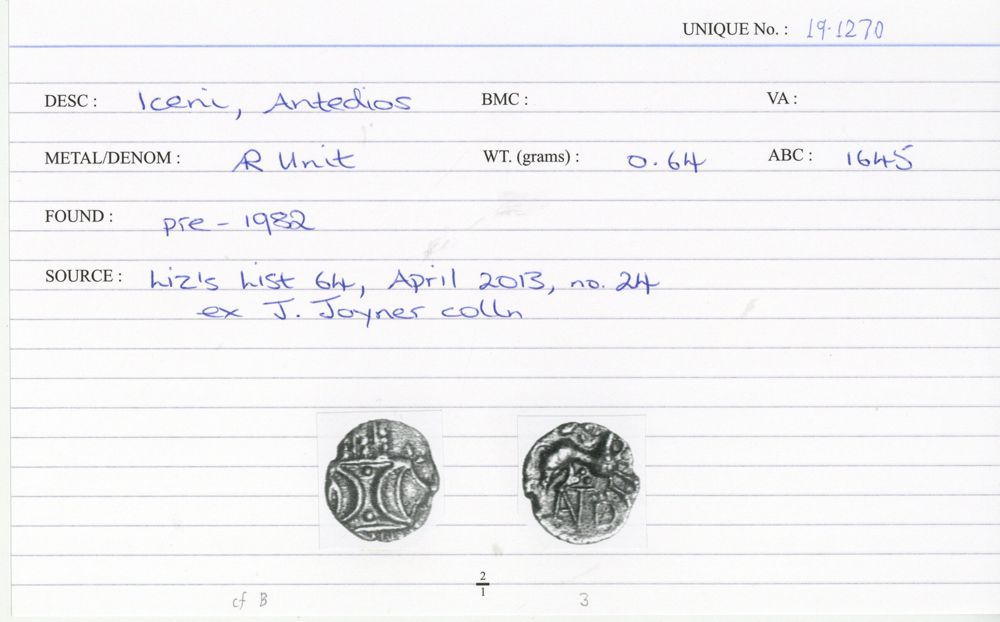 UNIQUE No. : 19.1270
DESC : Iceni, Antedios BMC : VA :
METAL/DENOM : AR Unit WT. (grams) : 0.64 ABC : 1645
FOUND : pre-1982
SOURCE : Liz's List 64, April 2013, no. 24
ex J. Joyner colln
ATD
2/1
cf B 3